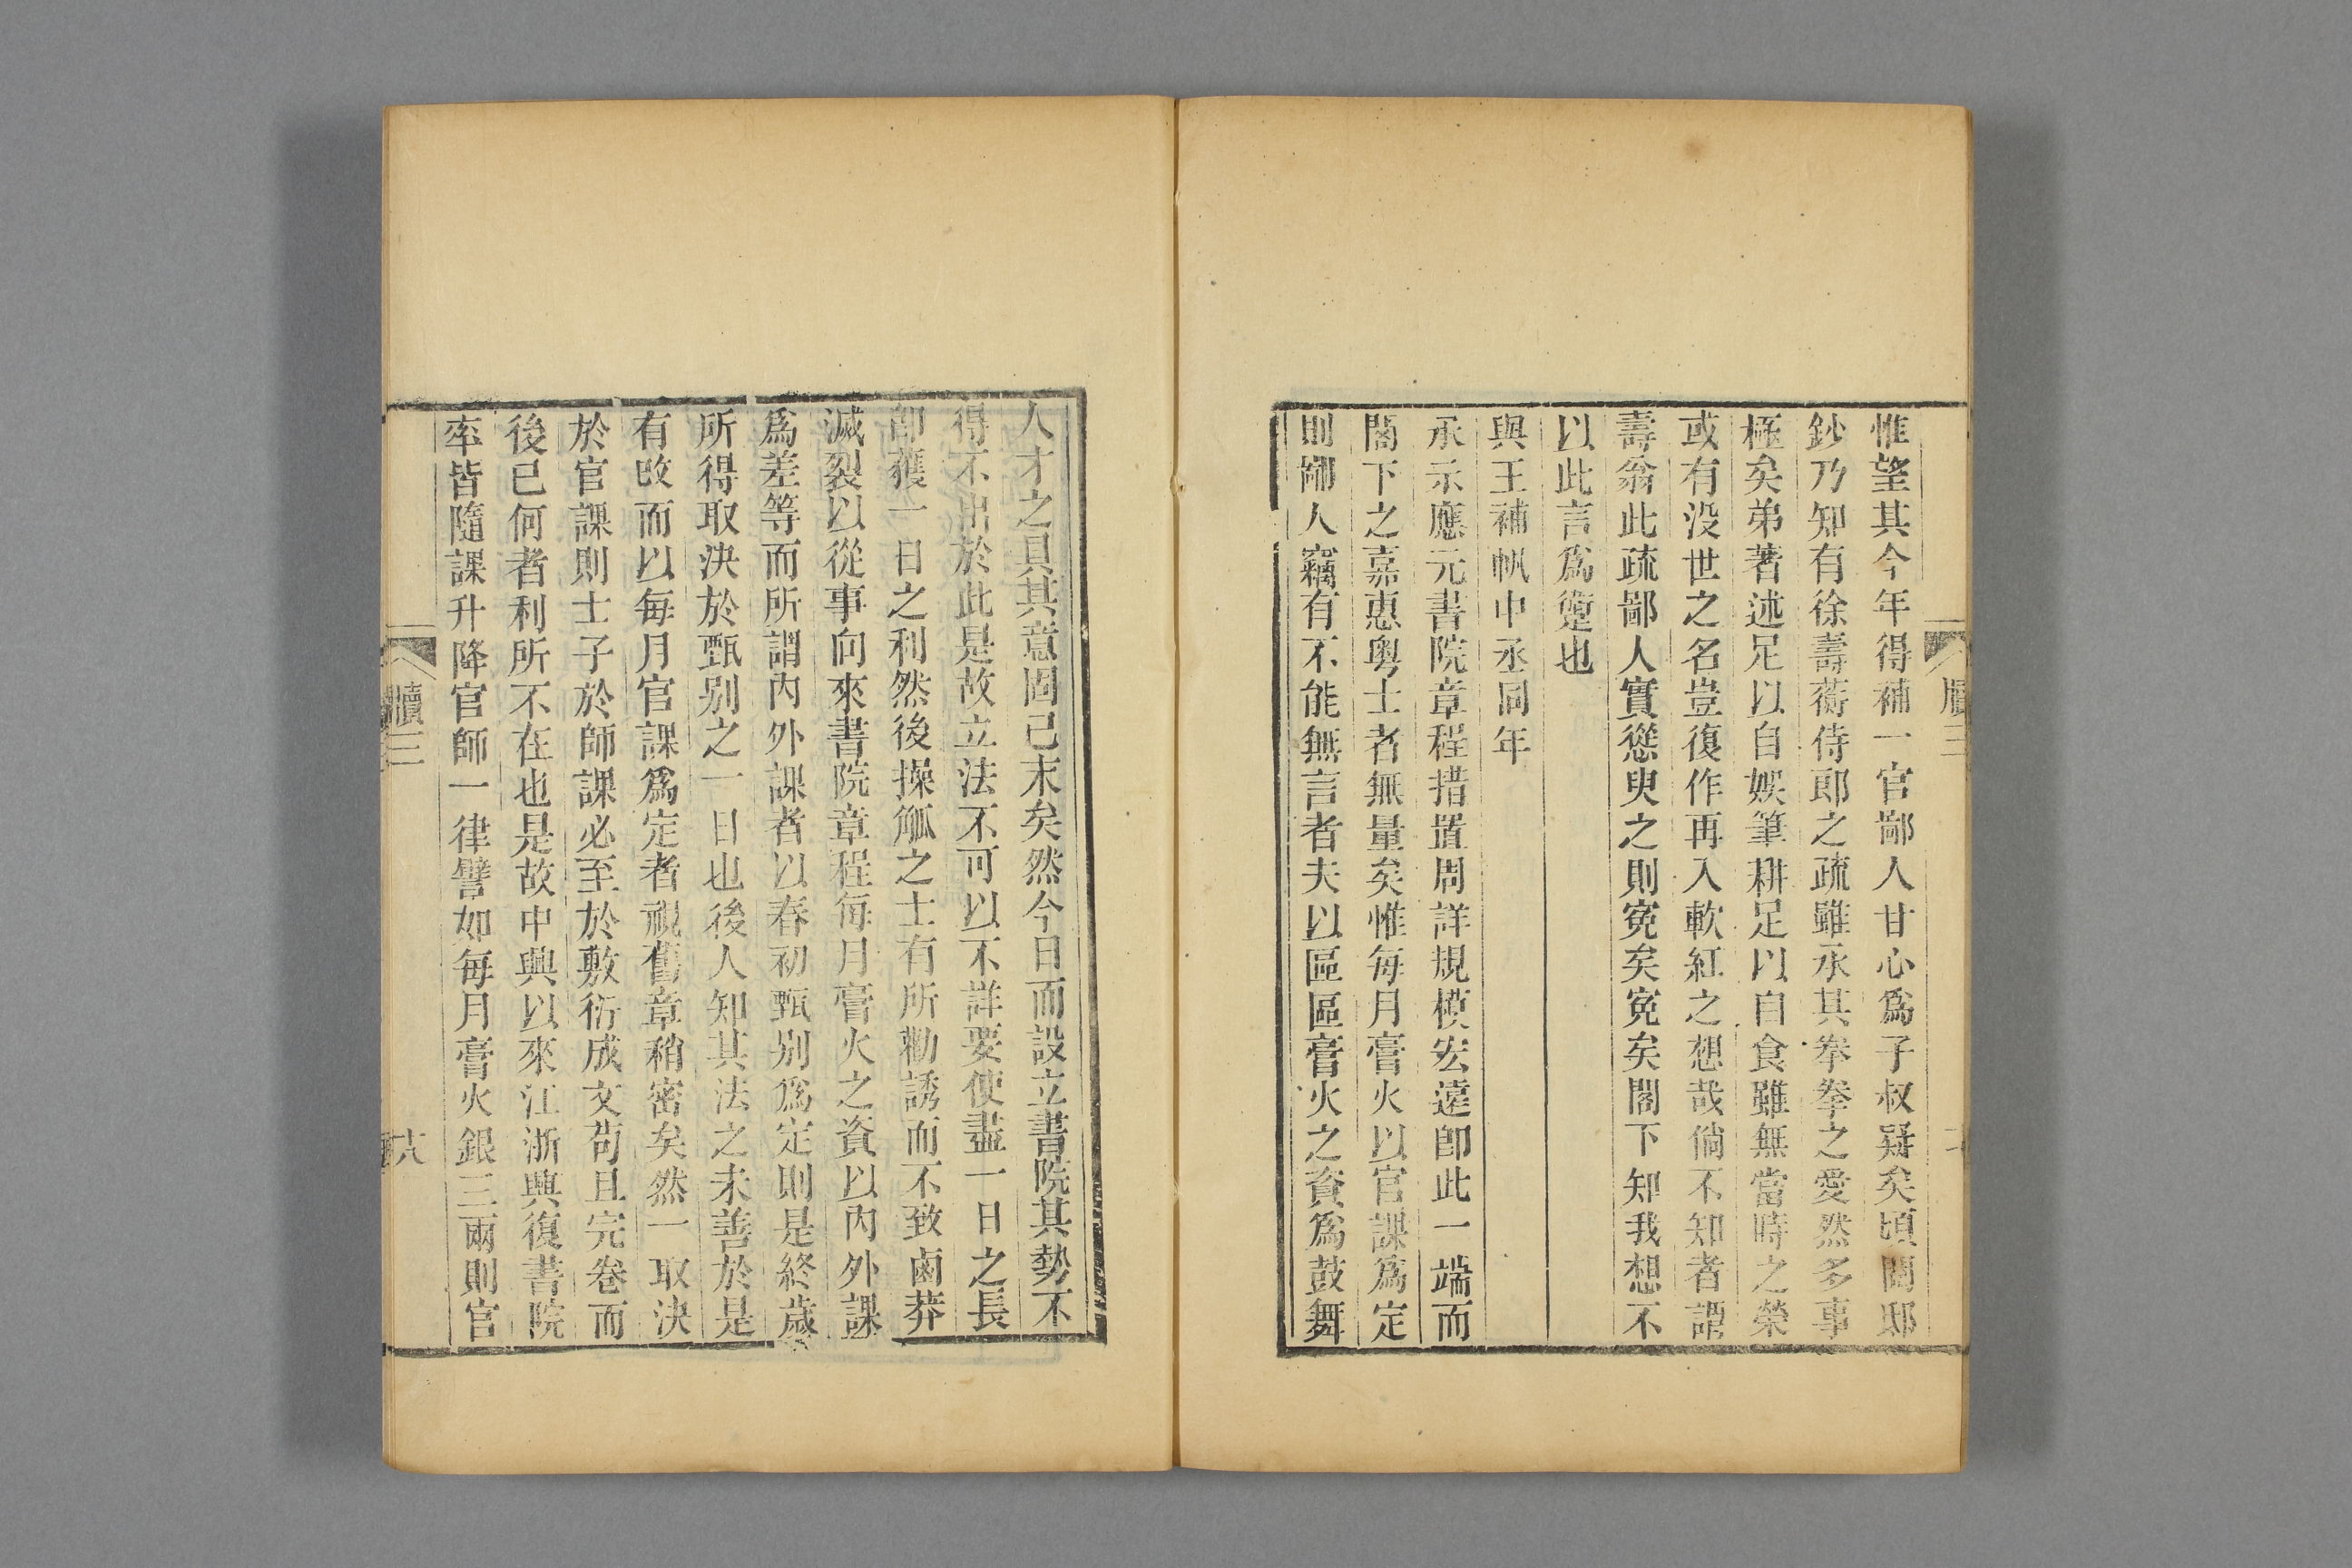 惟望其今年得補一官鄙人甘心爲子叔疑矣頃閱邸
鈔乃知有徐壽蘅侍郎之疏雖承其拳拳之愛然多事
極矣弟著述足以自娛筆耕足以自食雖無當時之榮
或有没世之名豈復作再入軟紅之想哉倘不知者謂
壽翁此疏鄙人實慫臾之則冤矣冤矣閣下知我想不
以此言爲虛也
與王補帆中丞同年
承示應元書院章程措置周詳規模宏遠卽此一端而
閣下之嘉惠粵士者無量矣惟每月膏火以官課爲定
則鄙人竊有不能無言者夫以區區膏火之資爲鼓舞
人才之具其意固已末矣然今日而設立書院其勢不
得不出於此是故立法不可以不詳要使盡一日之長
卽獲一日之利然後操觚之士有所勸誘而不致鹵莽
滅裂以從事向來書院章程每月膏火之資以內外課
爲差等而所謂內外課者以春初甄别爲定則是終歲
所得取決於甄别之一日也後人知其法之未善於是
有改而以每月官課爲定者視舊章稍密矣然一取決
於官課則士子於師課必至於敷衍成文苟且完卷而
後已何者利所不在也是故中興以來江浙興復書院
率皆隨課升降官師一律譬如每月膏火銀三兩則官
牘三
六